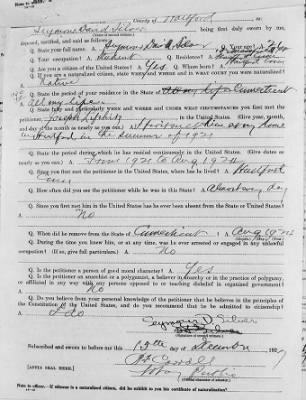 County of Hartford
Seymour David Silver being first duly sworn by me,
deposed, testified, and said as follows:
Q. State your full name. A. Seymour David Silver
Q. Your occupation? A. Student Q. Residence? A.
Q. Are you a citizen of the United States? A. Yes Q. Where born? A.
Q. If you are a naturalized citizen, state when and where and in what court you were naturalized?
A. Native
Q. State the period of your residence in the State of Connecticut
A. All my life
Q. State fully particularly when and where and under what circumstances you first met
the petitioner, Joseph Lifshitz (Give year, month,
and day if the month as nearly as you can.) A. I first met him at my home
in Hartford in the summer of 1921
Q. State the period during which he has resided continuously in the United States. (Give dates as
nearly as you can.) A. From 1921 to Aug 1924
Q. Since you first met the petitioner in the United States, where has he lived? A. Hartford
Conn
Q. How often did you see the petitioner while he was in this State? A. Almost every day
Q. Since you first met him in the United States has he ever been absent from the State or United States?
A. No
Q. When did he remove from the State of Connecticut? A. Aug 1924
Q. During the time you knew him, or at any time, was he ever arrested or engaged in any unlawful
occupation? (If so, give full particulars.) A. No
Q. Is the petitioner a person of good moral character? A. Yes
Q. Is the petitioner an anarchist or a polygamist, a believer in anarchy or in the practice of polygamy,
or affiliated in any way with any persons opposed to or teaching disbelief in organized government?
A. No
Q. Do you believe from your personal knowledge of the petitioner that he believes in the principles of
the Constitution of the United States, and do you recommend that he be admitted to citizenship?
A. I do
Seymour D. Silver
Subscribed and sworn to before me this 13th day of December, 1927
[AFFIX SEAL HERE.]
Note to officer: If witness is a naturalized citizen, did he exhibit to you his certificate of naturalization?